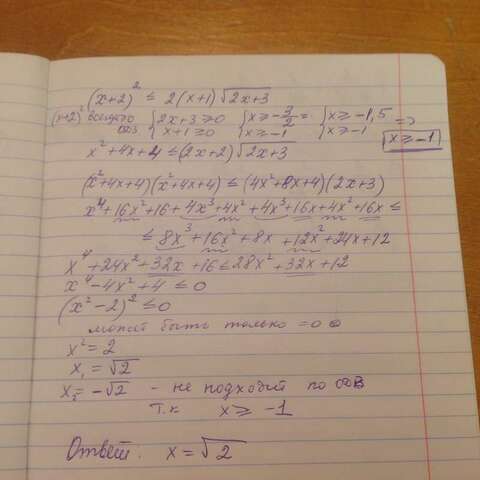 (x+2)² ≤ 2(x+1)√2x+3
(x+2)² всегда ≥0 {2x+3≥0 {x≥-3/2 = {x≥-1,5 =>
x+1≥0 x≥-1 x≥-1 x≥-1
x²+4x+4 ≤ (2x+2)√2x+3
(x²+4x+4)(x²+4x+4) ≤ (4x²+8x+4)(2x+3)
x⁴+16x²+16+4x³+4x²+4x³+16x+4x²+16x ≤
≤ 8x³+16x²+8x+12x²+24x+12
x⁴+24x²+32x+16≤28x²+32x+12
x⁴-4x²+4 ≤0
(x²-2)² ≤0
может быть только =0
x²=2
x₁=√2
x₂=-√2 - не подходит по ООВ
т.к x≥-1
Ответ. x=√2